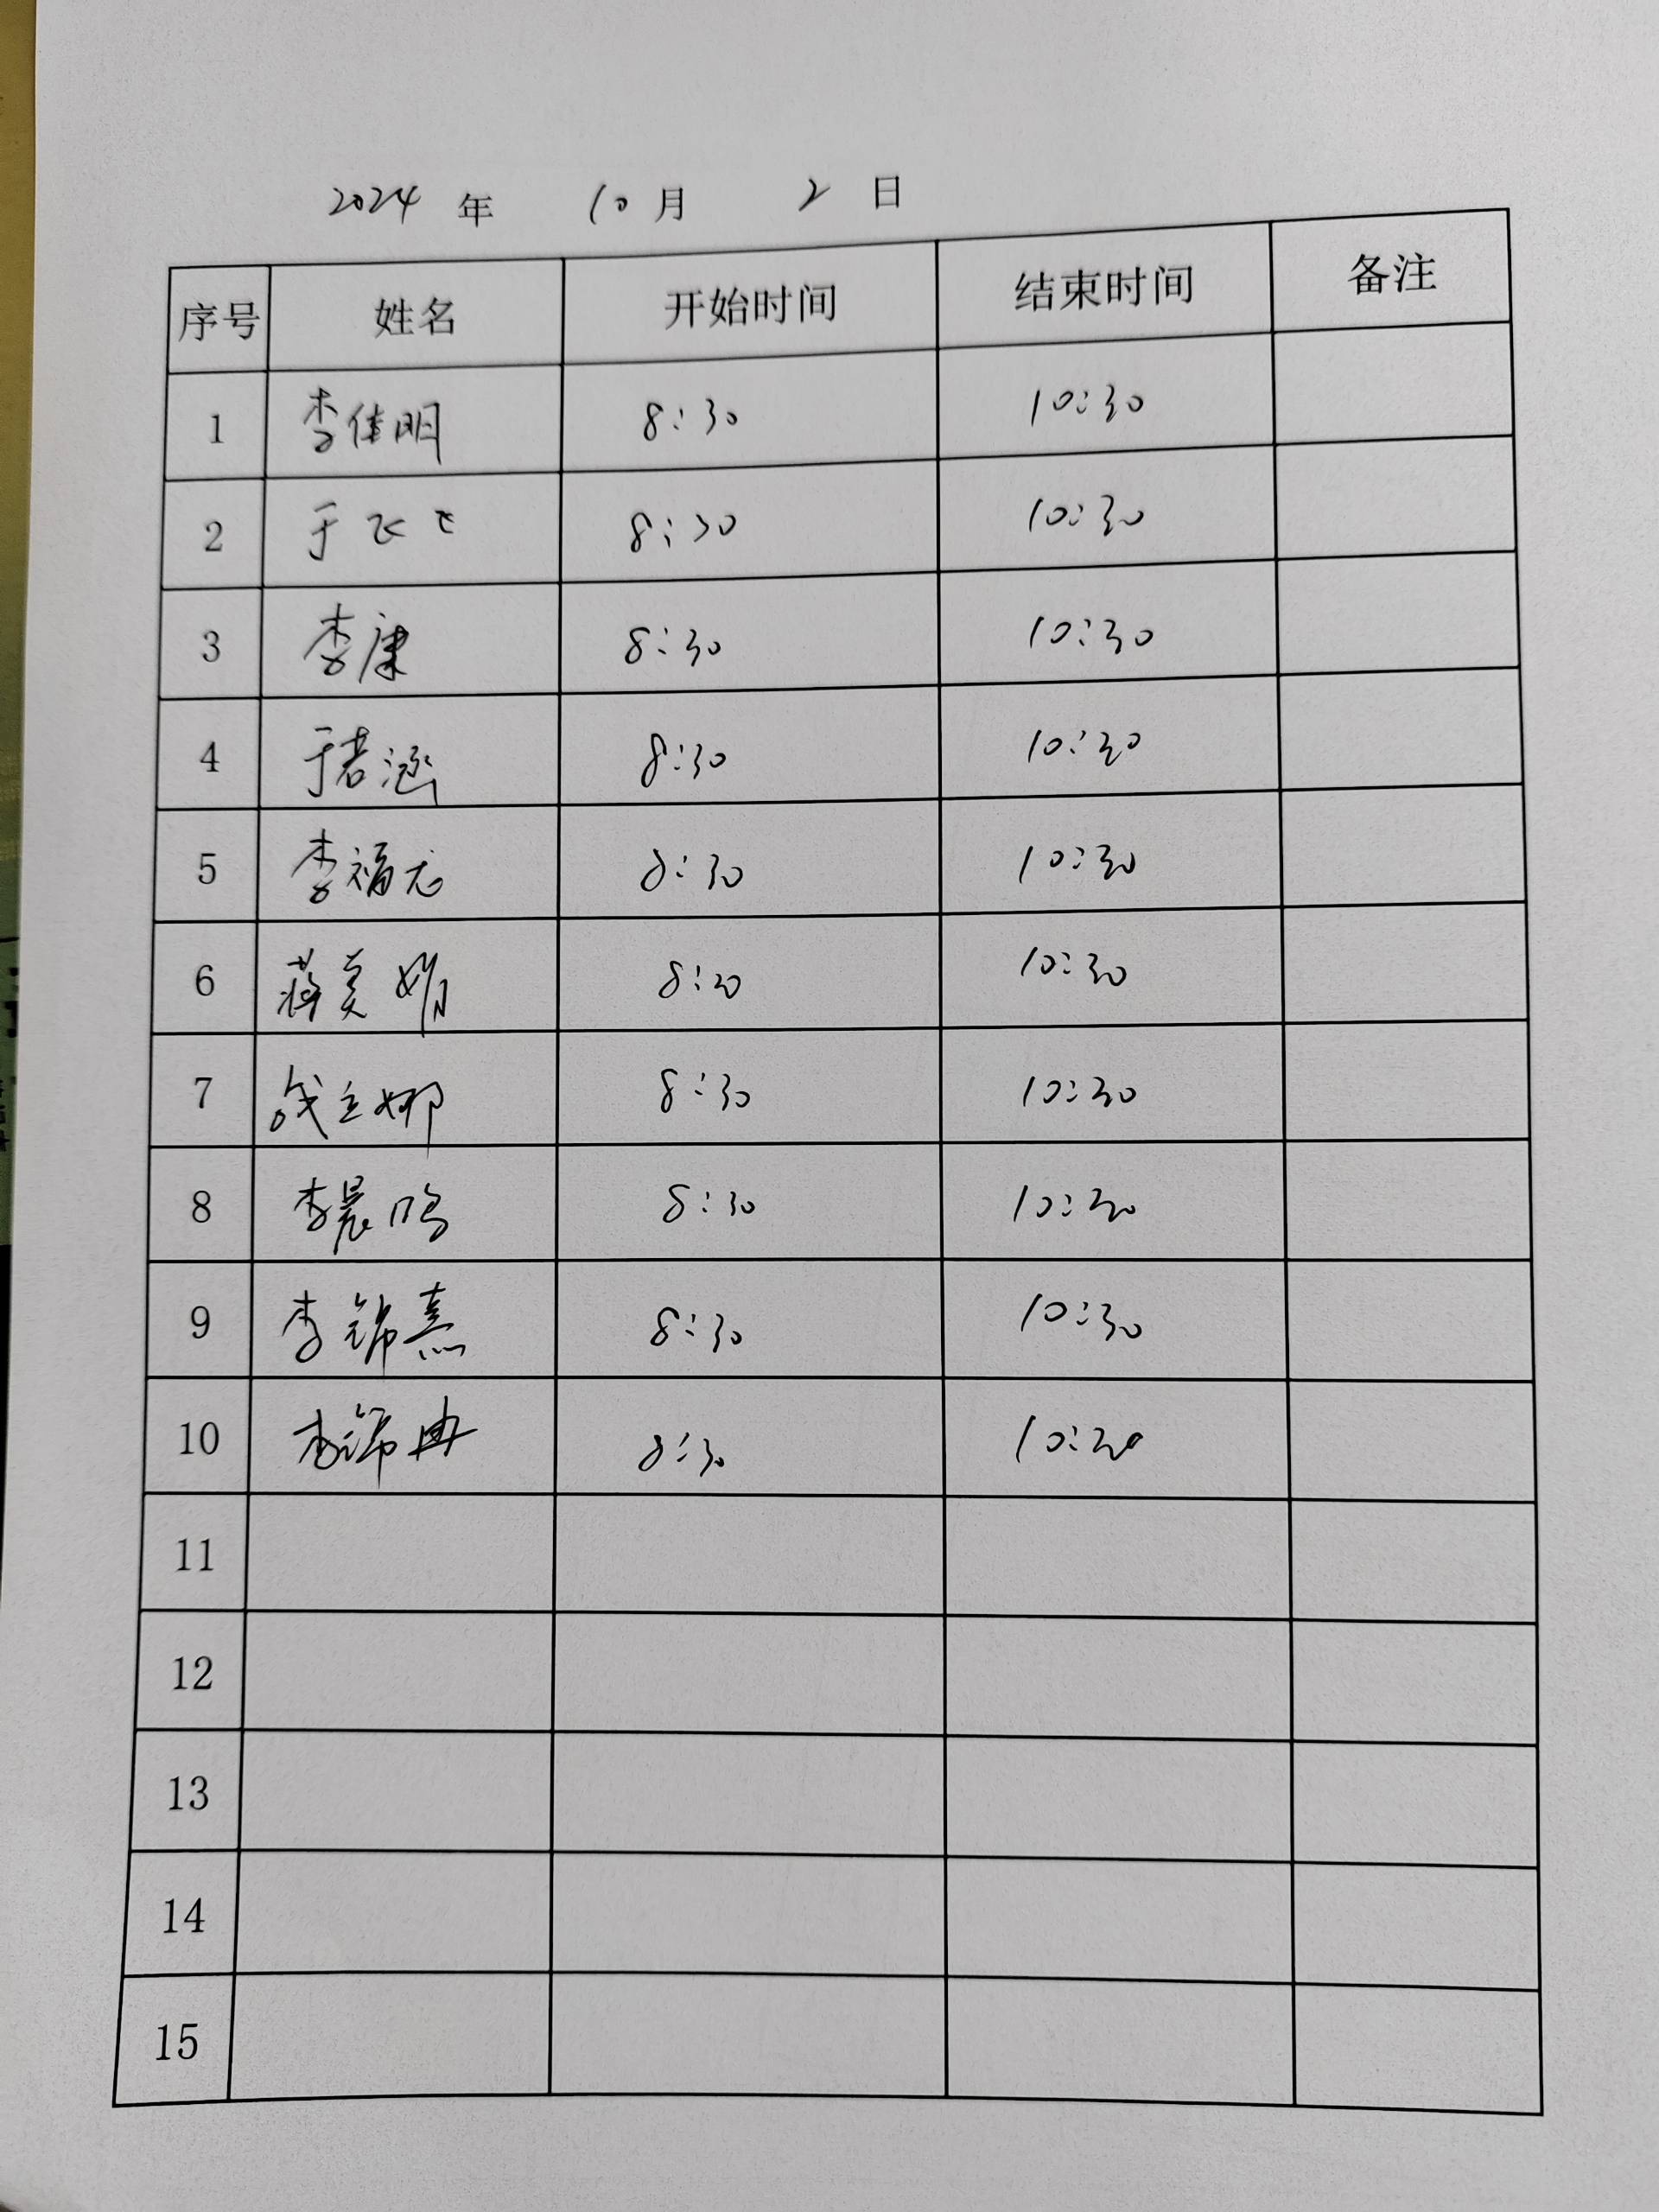 2024 年 10 月 2 日
序号 姓名 开始时间 结束时间 备注
1 李佳明 8:30 10:30
2 于飞飞 8:30 10:30
3 李康 8:30 10:30
4 于若涵 8:30 10:30
5 李福龙 8:30 10:30
6 蒋莫娟 8:30 10:30
7 战立娜 8:30 10:30
8 李晨鸣 8:30 10:30
9 李锦熹 8:30 10:30
10 李锦冉 8:30 10:30
11
12
13
14
15